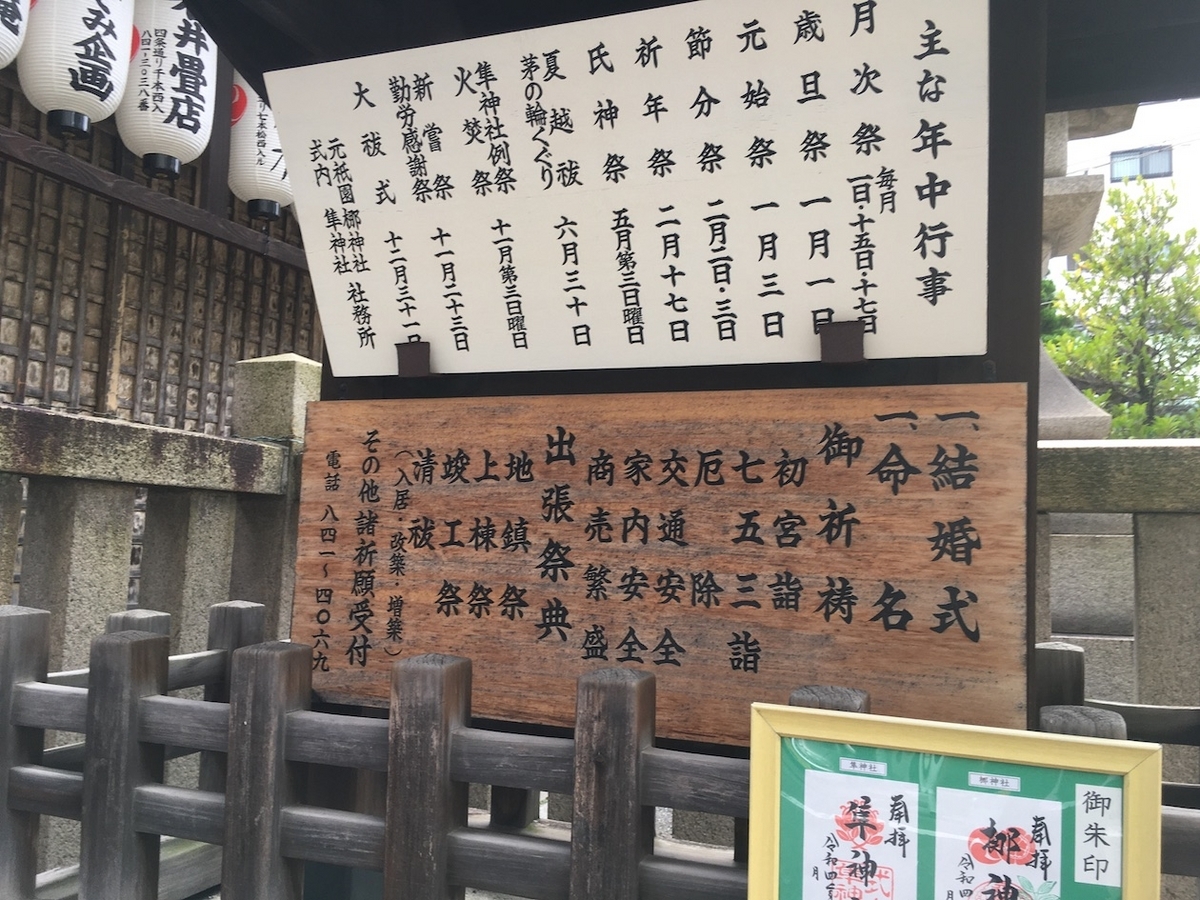 主な年中行事
月次祭 毎月一日・十五日・十七日
歳旦祭 一月一日
元始祭 一月三日
節分祭 二月二日・三日
祈年祭 二月十七日
氏神祭 五月第三日曜日
夏越祓 六月三十日
茅の輪くぐり
隼神社例祭 十一月第三日曜日
火焚祭
新嘗祭 十一月二十三日
勤労感謝祭
大祓式 十二月三十一日
元祇園 梛神社
式内 隼神社 社務所
一、結婚式
一、命名
御祈祷
初宮詣
七五三詣
厄除
交通安全
家内安全
商売繁盛
出張祭典
地鎮祭
上棟祭
竣工祭
清祓
(入居・改築・増築)
その他諸祈願受付
電話 八四一〜四〇六九
井畳店
四条通り千本西入
八四一-三〇三八番
み企画
御朱印
梛神社
奉拝
梛神
令和四
月
隼神社
奉拝
隼神
令和四年
月